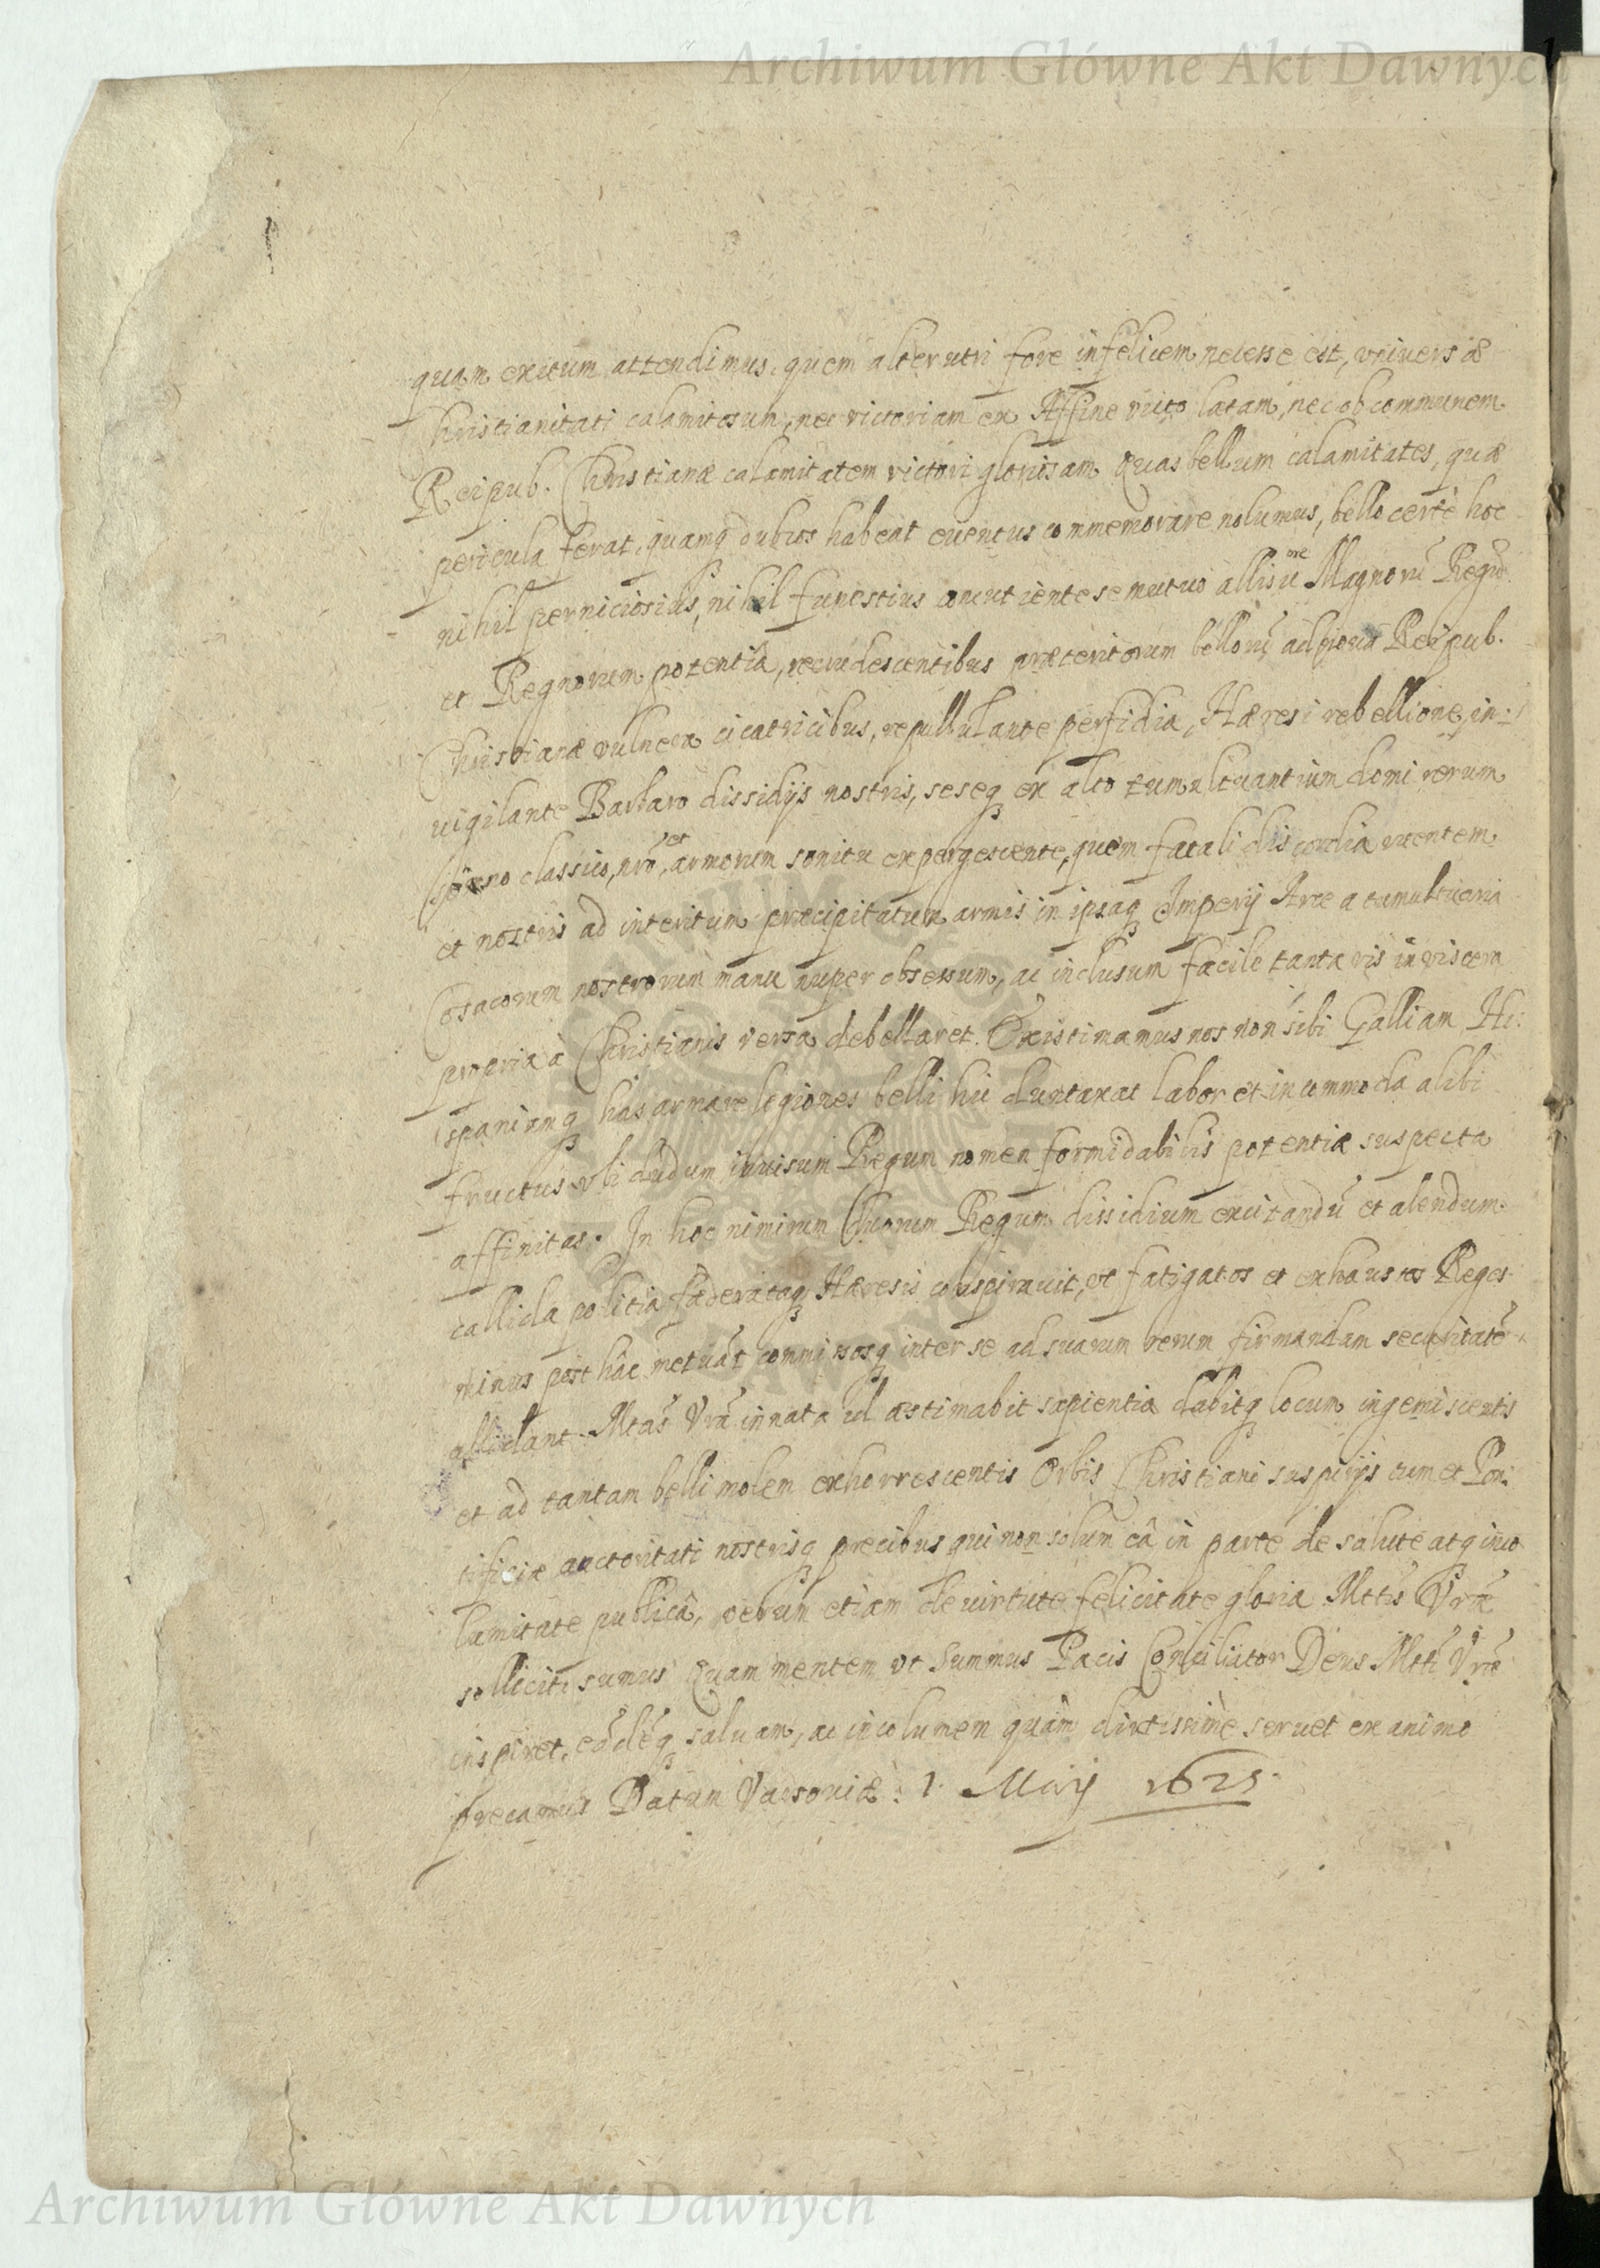 Archiwum Główne Akt Dawnych
quam exitum attendimus, quem alterutri fore infelicem necesse est, universæ
Christianitati calamitosum, nec victoriam ex Affine victo lætam, nec ob communem
Reipub. Christianæ calamitatem victori gloriosam. Quas bellum calamitates, quæ
pericula ferat, quamq dubios habeat euentus commemorare nolumus, bello certè hoc
nihil perniciosius, nihil funestius concutiente se mutuo Magnorũ Regũ
et Regnorum potentiâ, recrudescentibus præteritorum bellorũ ad noua Reipub.
Christianæ vulnera cicatricibus, repullulante perfidia, Hæresi rebellione, in:
uigilante Barbaro dissidijs nostris, seseq ex alto tumultuantium domi rerum
classico, nrõ et armorum sonitu expergescente, quem fatali discordia utentem
et nostris ad interitum præcipitatum armis in ipsaq Imperij Arce a tumultuaria
Cosacorum nostrorum manu nuper obsessum, ac inclusum facile tanta vis in viscera
propria à Christianis versa debellaret. Existimamus nos non sibi Galliam Hi:
spaniamq has armare legiones belli hic duntaxat labor et incommoda alibi
fructus ubi dudum inuisum Regum nomen formidabilis potentiæ suspecta
affinitas. In hoc nimirum Duorum Regum dissidium excitandũ et alendum
callida politia fæderataq Hæresis conspirauit, ut fatigatos et exhaustos Reges
minus post hâc metuãt commissosq inter se ad suarum rerum firmandam securitatẽ
allidant. Mtas Vrã innata id æstimabit sapientia dabitq locum ingemiscentis
et ad tantam belli molem exhorrescentis Orbis Christiani suspirijs tum et Pon:
tificiæ auctoritati nostrisq precibus qui non solum eâ in parte de salute atq inco
lumitate publicâ, verum etiam de uirtute felicitate gloria Mttis Vræ
solliciti sumus. Quam mentem ut Summus Pacis Conciliator Deus Mtti Vræ
inspiret, eãdẽq saluam, ac incolumem quàm diutissimè seruet ex animo
precamur Datum Varsouiæ: 1. Maij 1625.
Archiwum Główne Akt Dawnych